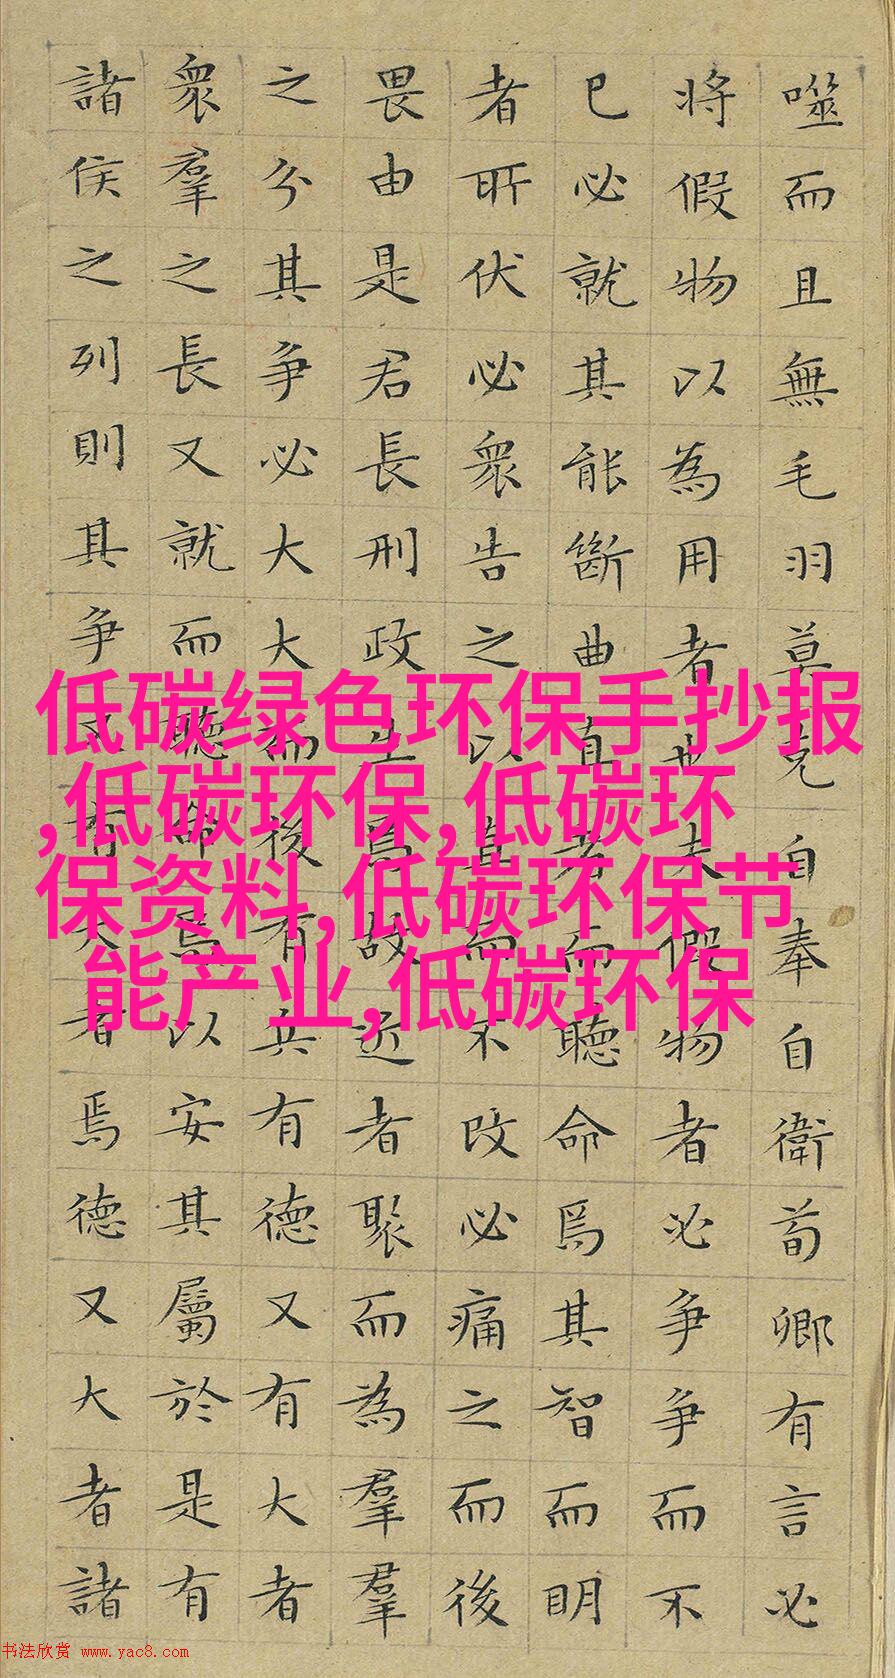 噬而且無毛羽莫克自奉自衛荀卿有言必
將假物以為用者也夫假物者必爭爭而不
已必就其能斷曲直者而聽命焉其智而明
者所伏必衆告之以直而不改必痛之而後
畏由是君長刑政生焉故近者聚而為羣羣
之分其爭必大大而後有兵有德又有大者
衆羣之長又就而聽命焉以安其屬於是有
諸侯之列則其爭又有大者焉德又大者諸
低碳绿色环保手抄报
,低碳环保,低碳环
保资料,低碳环保节
能产业,低碳环保
书法欣赏 www.yac8.com